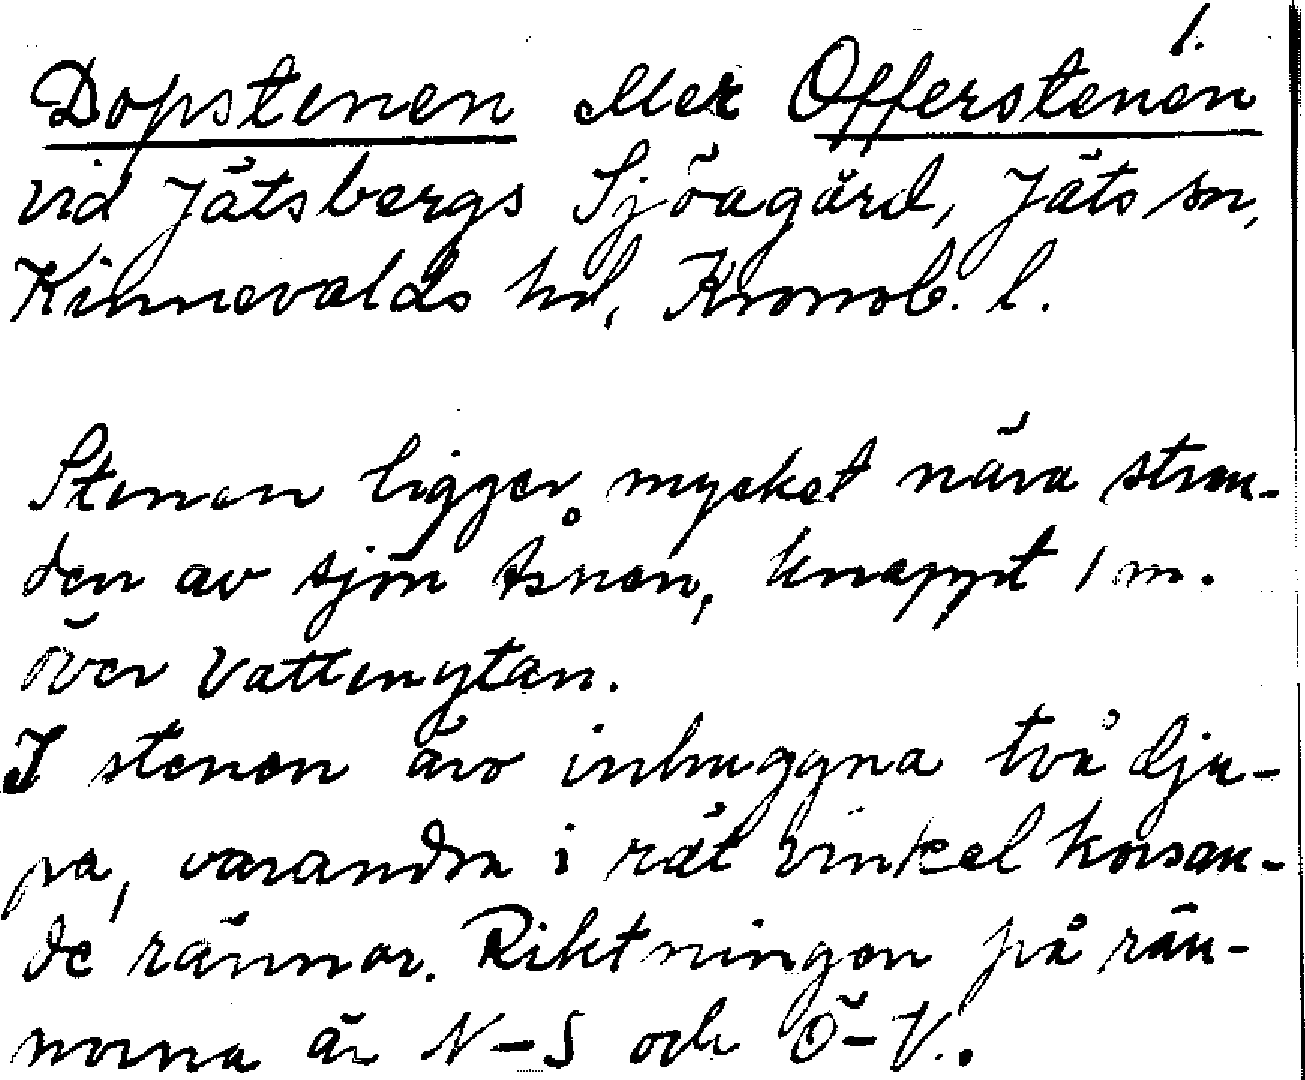 1.
Dopstenen eller Offerstenen
vid Jätsbergs Sjöagård, Jäts sn,
Kinnevalds hd, Kronob. l.
Stenen ligger mycket nära stran-
den av sjön Åsnen, knappt 1 m.
över vattenytan.
I stenen äro inhuggna två dju-
pa, varandra i rät vinkel korsan-
de rännor. Riktningen på rän-
norna är N-S och Ö-V.